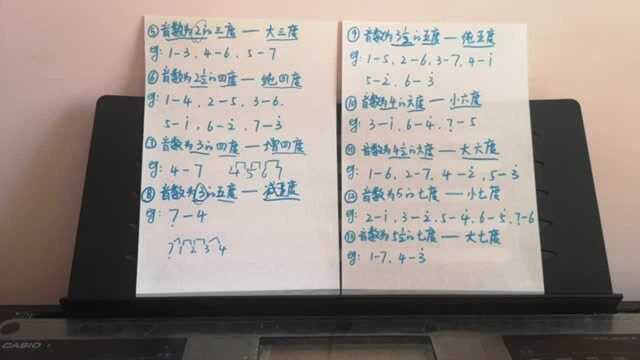 ⑤ 音数为2的三度 — 大三度
eg: 1-3、4-6、5-7
⑥ 音数为2½的四度 — 纯四度
eg: 1-4、2-5、3-6、
5-i、6-2̇、7-3̇
⑦ 音数为3的四度 — 增四度
eg: 4-7 4 5 6 7
⑧ 音数为3的五度 — 减五度
eg: 7̣-4
7̣ 1 2 3 4
⑨ 音数为3½的五度 — 纯五度
eg: 1-5、2-6、3-7、4-i
5-2̇、6-3̇
⑩ 音数为4的六度 — 小六度
eg: 3-i、6-4̇、7̣-5
⑪ 音数为4½的六度 — 大六度
eg: 1-6、2-7、4-2̇、5-3̇
⑫ 音数为5的七度 — 小七度
eg: 2-i、3-2̇、5-4̇、6-5̇、7̣-6
⑬ 音数为5½的七度 — 大七度
eg: 1-7、4-3̇
CASIO